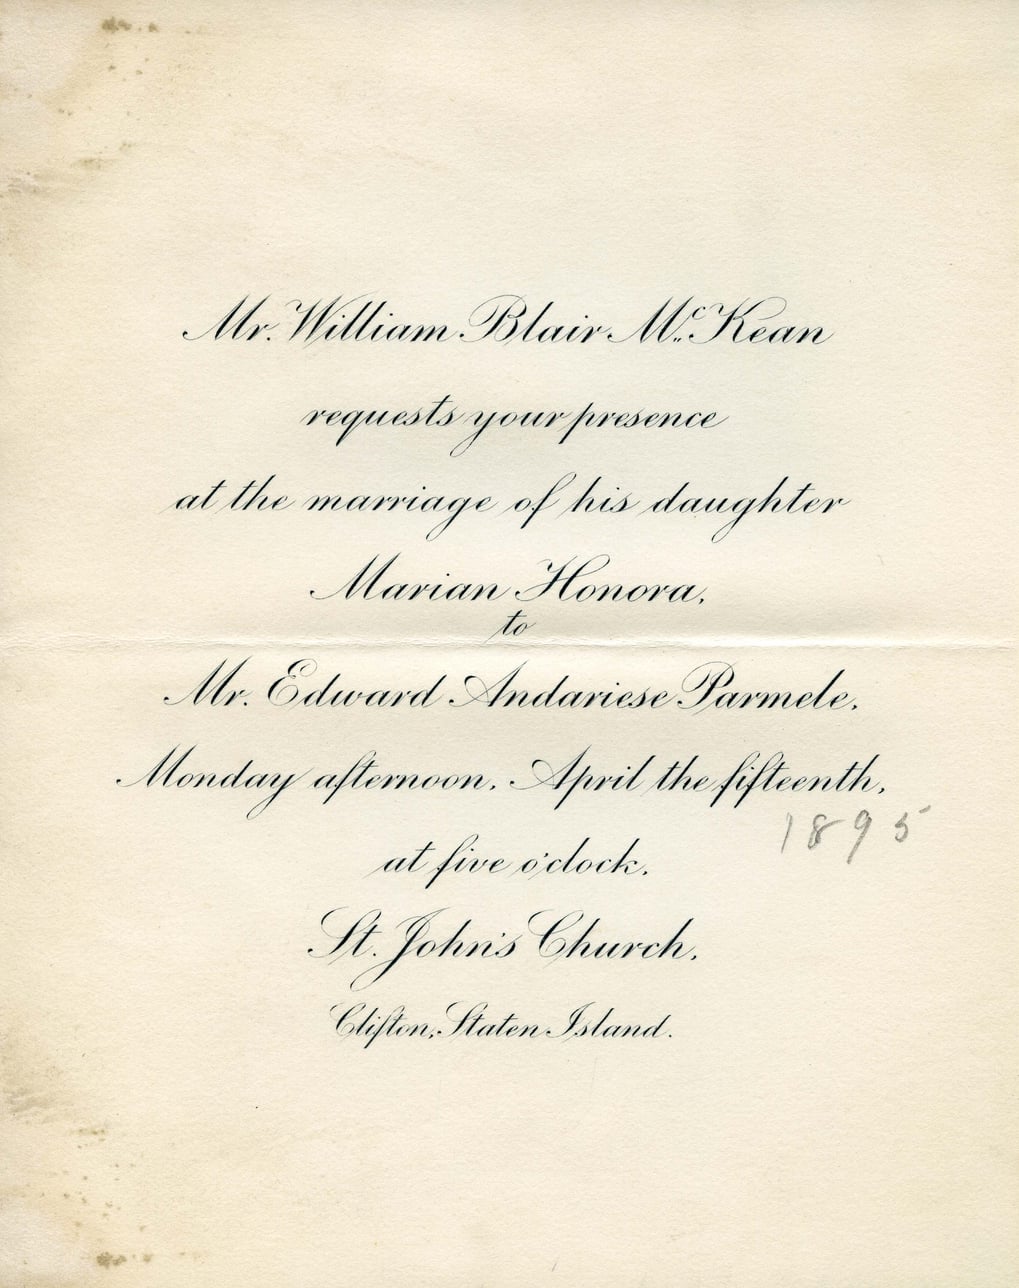 Mr. William Blair McKean
requests your presence
at the marriage of his daughter
Marian Honora,
to
Mr. Edward Andariese Parmele,
Monday afternoon, April the fifteenth,
1895
at five o'clock,
St. John's Church,
Clifton, Staten Island.